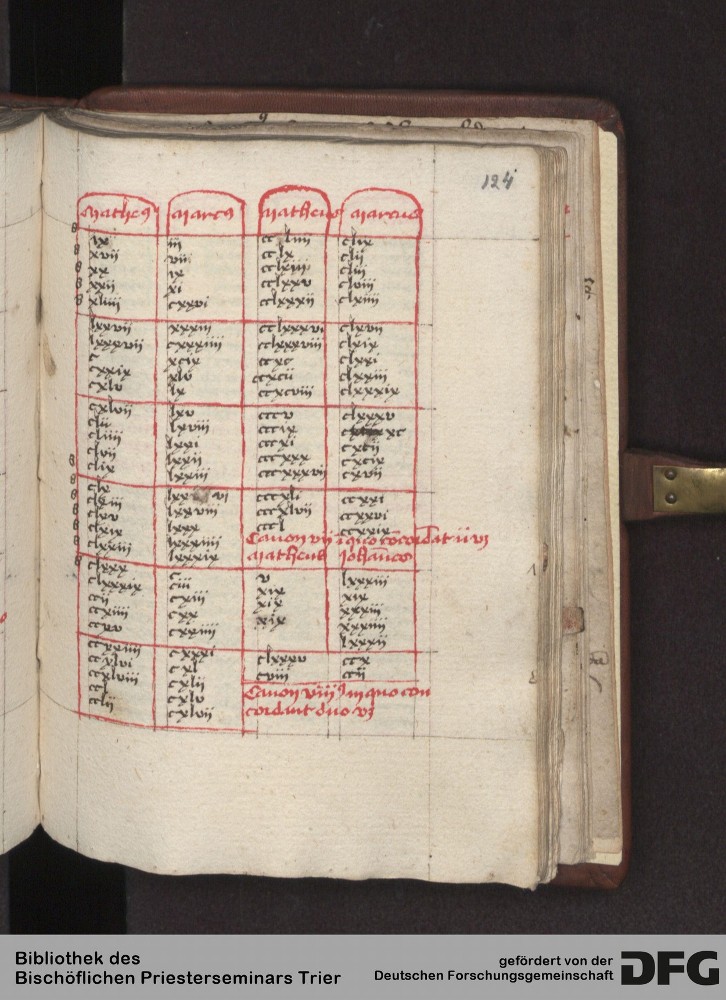 124
Matheus Marcus Matheus Marcus
ix iii cclxiiii clix
xvii vii cclx clii
xx ix cclxiii cliii
xxii xi cclxxv clviii
xliiii cxxvi cclxxxii clxiiii
lxxvii xxxiii cclxxxvi clxvii
lxxxvii cxxxiiii cclxxxviii clxix
c xcix ccxc clxxi
cxxix xlv ccxcii clxxiii
cxlv lx ccxcviii clxxxix
cxlvii lxv cccv clxxxv
clii lxviii cccix cxc
cliiii lxxi cccxi cxcii
clvii lxxii cccxxx cxcix
clix lxxiii cccxxxvii cxvii
clx lxxvi cccxli ccxxi
clxiii lxxviii cccxlvii ccxxvi
clxv lxxx cccl ccxxix
clxix lxxxiiii Canon vii in quo concordant ii vz
clxxiii lxxxix Matheus Johannes
clxxx ciii v lxxxiii
clxxxix cxiii xix xix
ccii cxx xix xxxiii
ccxiiii cxxiiii xix xxxiiii
ccxv lxxxii
ccxxiiii cxxxi clxxxv ccx
ccxlvi cxl cviii ccii
ccxlviii cxlii Canon viii in quo con
ccl cxlv cordant duo vz
cclii cxlvii
Bibliothek des
Bischöflichen Priesterseminars Trier
gefördert von der
Deutschen Forschungsgemeinschaft
DFG